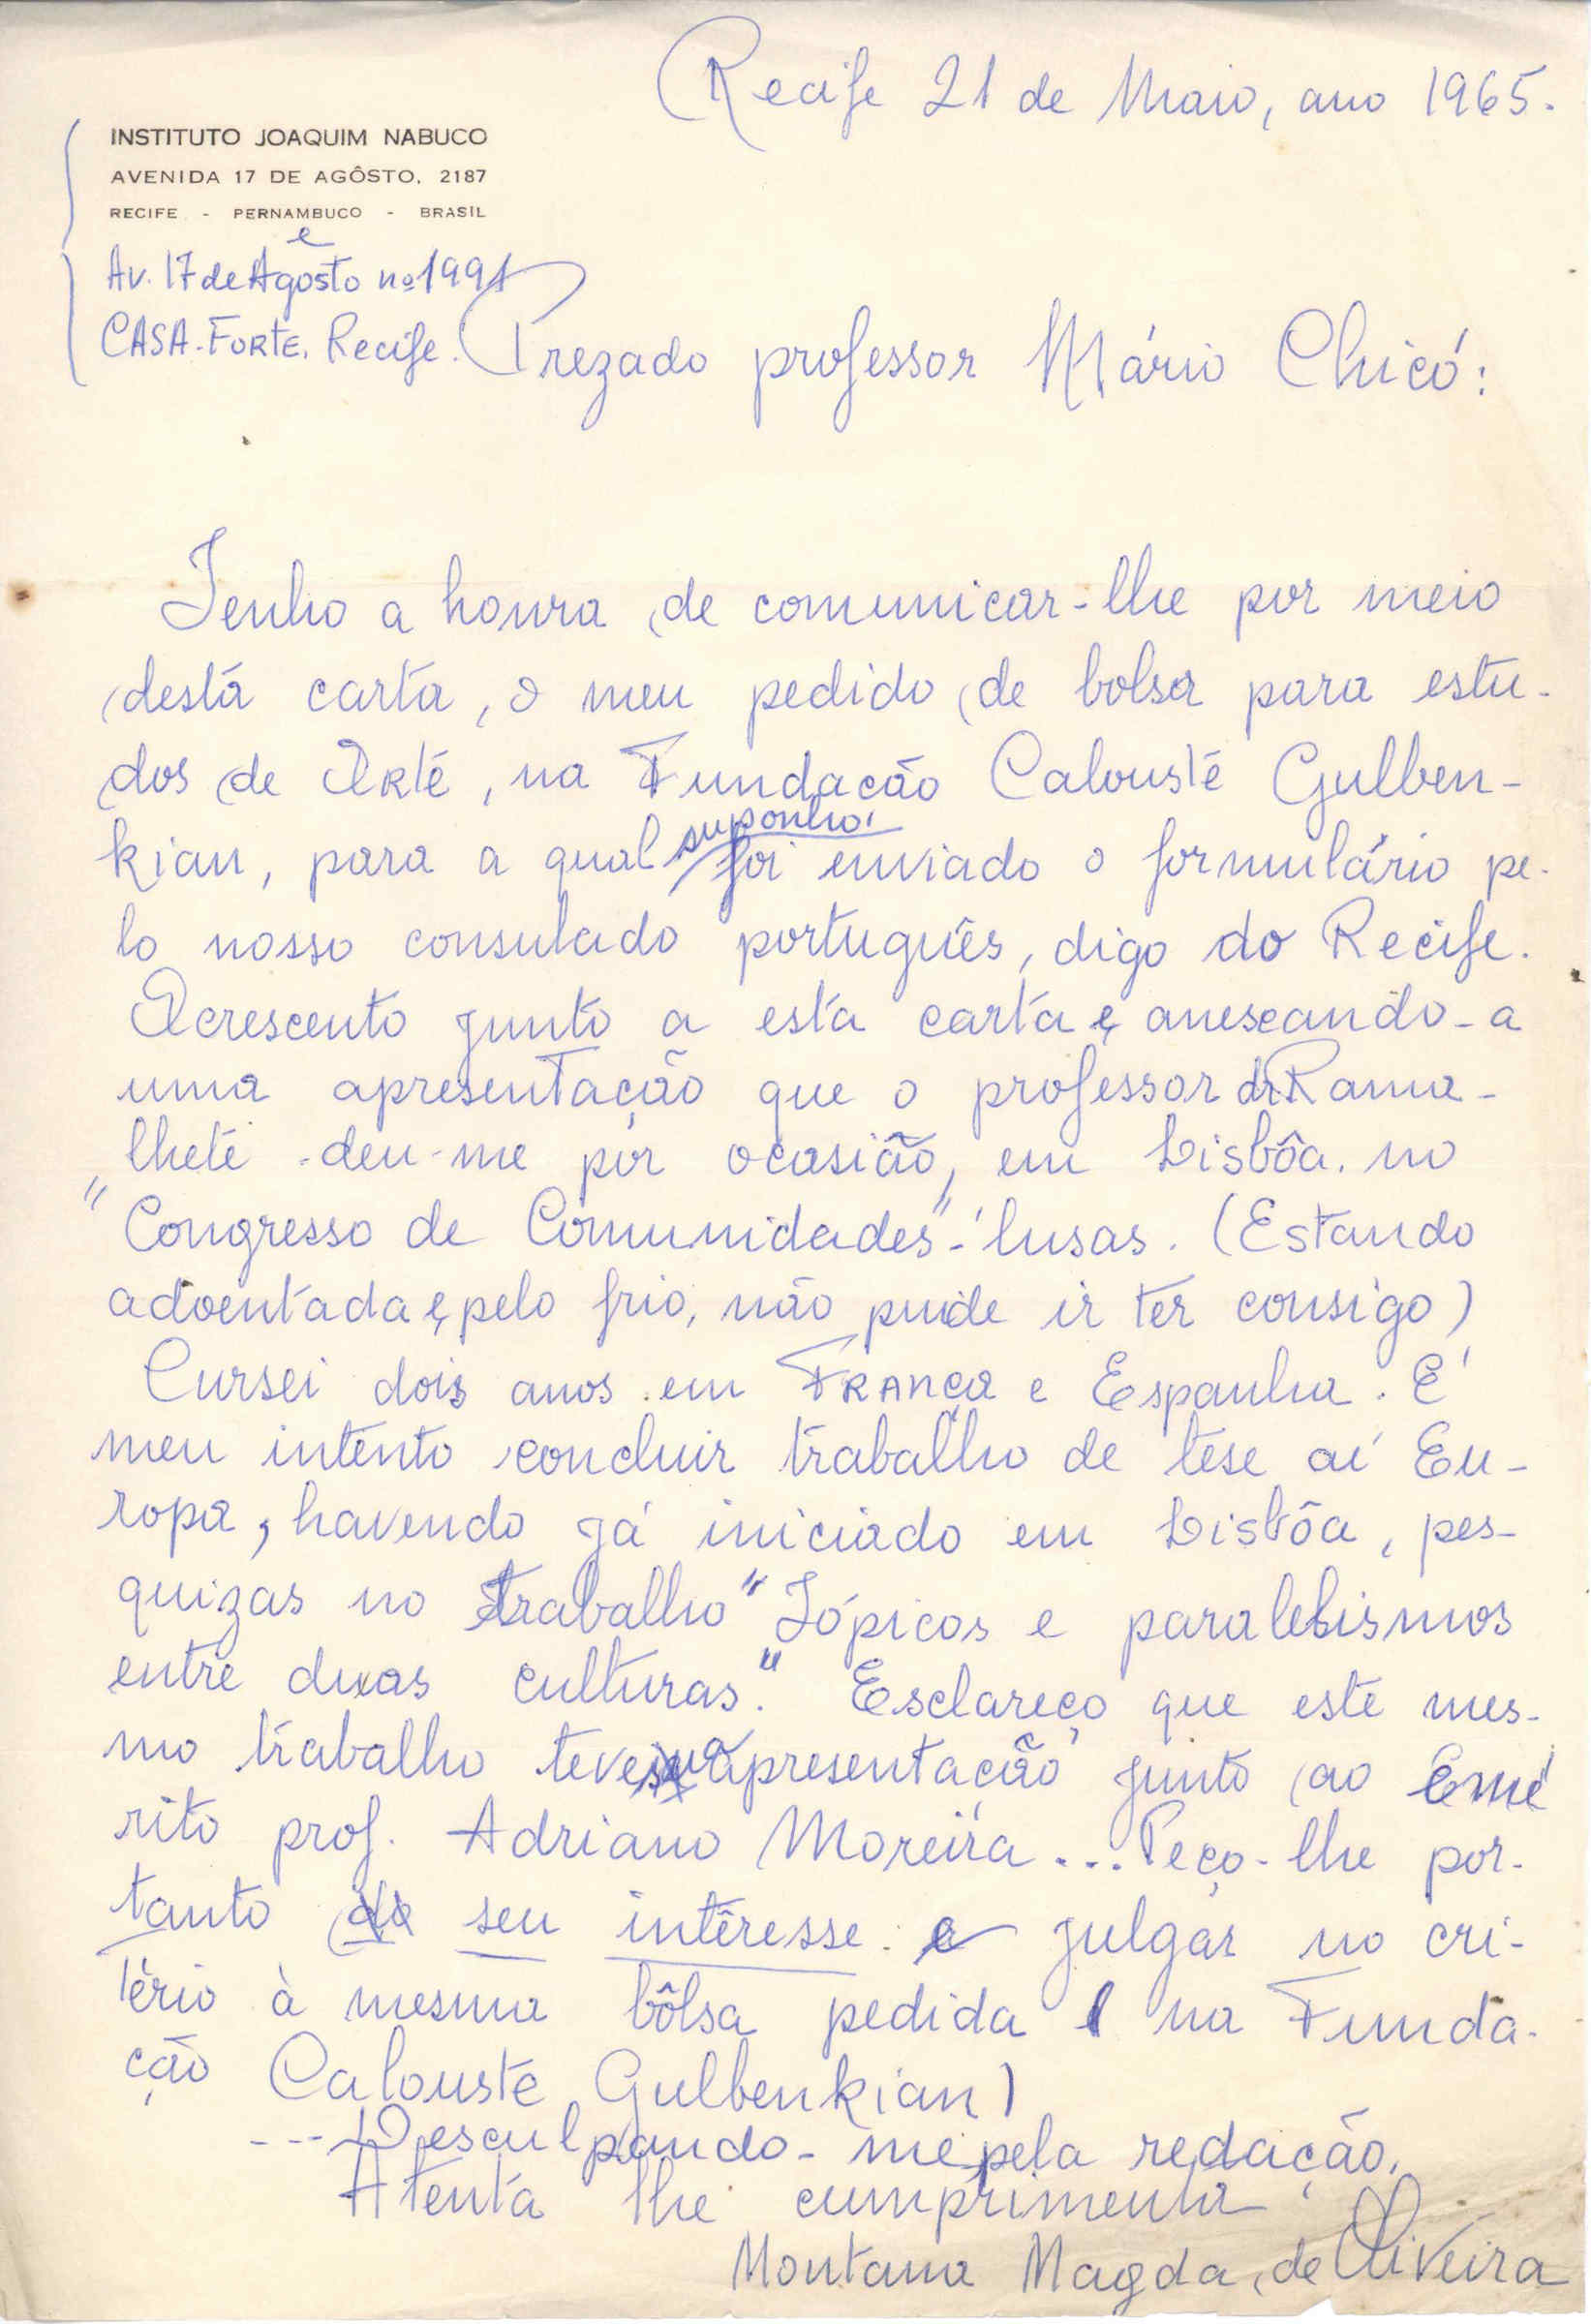 Recife 21 de Maio, ano 1965.
INSTITUTO JOAQUIM NABUCO
AVENIDA 17 DE AGÔSTO, 2187
RECIFE - PERNAMBUCO - BRASIL
e
Av. 17 de Agosto nº 1991
CASA-FORTE. Recife.
Prezado professor Mário Chicó:
Tenho a honra de comunicar-lhe por meio
desta carta, o meu pedido de bolsa para estu-
dos de Arte, na Fundação Calouste Gulben-
kian, para a qual suponho, foi enviado o formulário pe-
lo nosso consulado português, digo do Recife.
Acrescento junto a esta carta e anexando-a
uma apresentação que o professor dr Rama-
lhete deu-me por ocasião, em Lisbôa. no
"Congresso de Comunidades"-lusas. (Estando
adoentada e, pelo frio, não pude ir ter consigo)
Cursei dois anos em França e Espanha. É
meu intento concluir trabalho de tese aí Eu-
ropa, havendo já iniciado em Lisbôa, pes-
quizas no trabalho "Tópicos e paralelismos
entre duas culturas." Esclareço que este mes-
mo trabalho teve sua apresentação junto ao Emé
rito prof. Adriano Moreira... Peço-lhe por-
tanto seu intêresse. e julgar no cri-
tério à mesma bôlsa pedida ( na Funda-
ção Calouste Gulbenkian)
--- Desculpando-me pela redação,
Atenta lhe cumprimenta
Montana Magda, de Oliveira